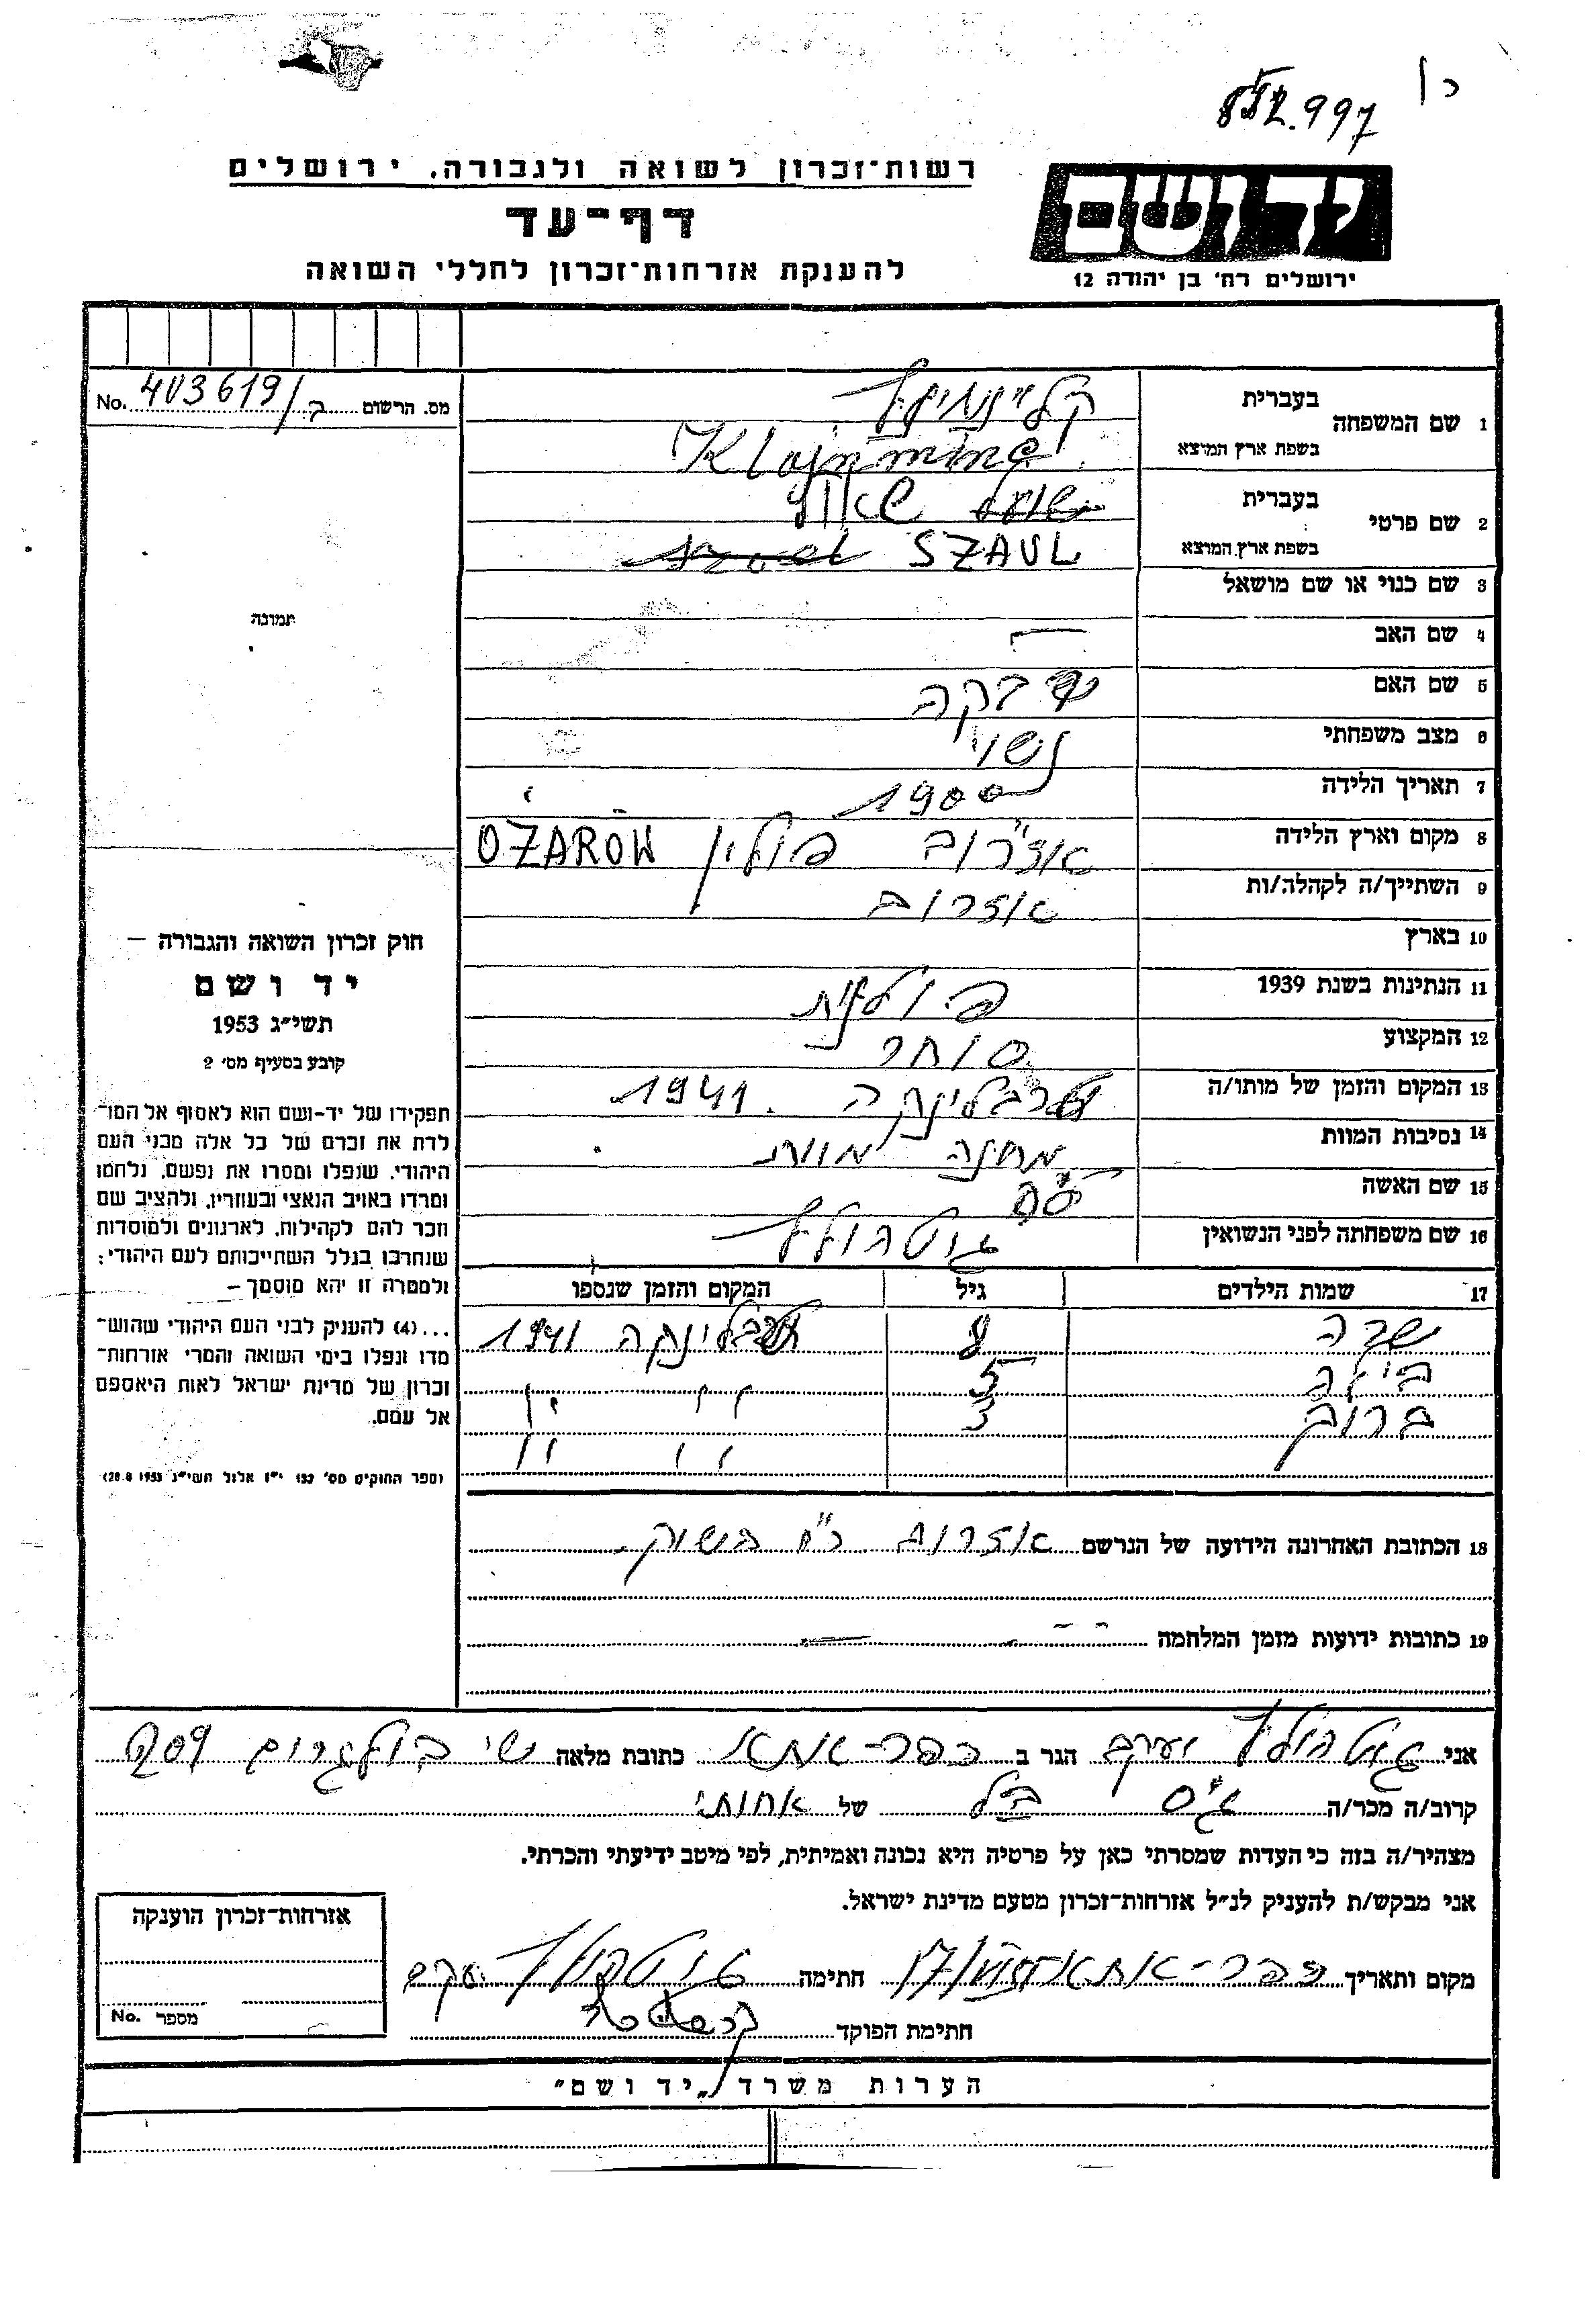 852.997
רשות-זכרון לשואה ולגבורה, ירושלים
דף-עד
להענקת אזרחות-זכרון לחללי השואה
יד ושם
ירושלים רח' בן יהודה 12
מס. הרשום ב/403619 No.
1 שם המשפחה בעברית
בשפת ארץ המוצא Klajnminc
2 שם פרטי בעברית שאול
בשפת ארץ המוצא SZAUL
3 שם כנוי או שם מושאל
4 שם האב
5 שם האם רבקה
6 מצב משפחתי נשוי
7 תאריך הלידה 1900
8 מקום וארץ הלידה אוז'רוב פולין OŻARÓW
9 השתייך/ה לקהלה/ות אוזרוב
10 בארץ
11 הנתינות בשנת 1939 פולנית
12 המקצוע סוחר
13 המקום והזמן של מותו/ה טרבלינקה 1941.
14 נסיבות המוות מחנה מוות
15 שם האשה
16 שם משפחתה לפני הנשואין גוטהולץ
17 שמות הילדים גיל המקום והזמן שנספו
שרה 8 טרבלינקה 1941
ביילה 5 " "
ברוך 3 " "
18 הכתובת האחרונה הידועה של הנרשם אוזרוב רח' השוק
19 כתובות ידועות מזמן המלחמה
תמונה
חוק זכרון השואה והגבורה –
יד ושם
תשי״ג 1953
קובע בסעיף מס' 2
תפקידו של יד-ושם הוא לאסוף אל המו־
לדת את זכרם של כל אלה מבני העם
היהודי, שנפלו ומסרו את נפשם, נלחמו
ומרדו באויב הנאצי ובעוזריו, ולהציב שם
וזכר להם לקהילות, לארגונים ולמוסדות
שנחרבו בגלל השתייכותם לעם היהודי;
ולמטרה זו יהא מוסמך –
...(4) להעניק לבני העם היהודי שהוש־
מדו ונפלו בימי השואה והמרי אזרחות-
זכרון של מדינת ישראל לאות היאספם
אל עמם.
(ספר החוקים מס' 132 י״ז אלול תשי״ג 28.8.1953)
אני גוטהולץ יעקב הגר ב כפר-אתא כתובת מלאה
קרוב/ה מכר/ה גיס בעל של אחותי
מצהיר/ה בזה כי העדות שמסרתי כאן על פרטיה היא נכונה ואמיתית, לפי מיטב ידיעתי והכרתי.
אני מבקש/ת להעניק לנ״ל אזרחות-זכרון מטעם מדינת ישראל.
מקום ותאריך כפר-אתא חתימה גוטהולץ יעקב
חתימת הפוקד
אזרחות-זכרון הוענקה
מספר No.
הערות משרד „יד ושם"